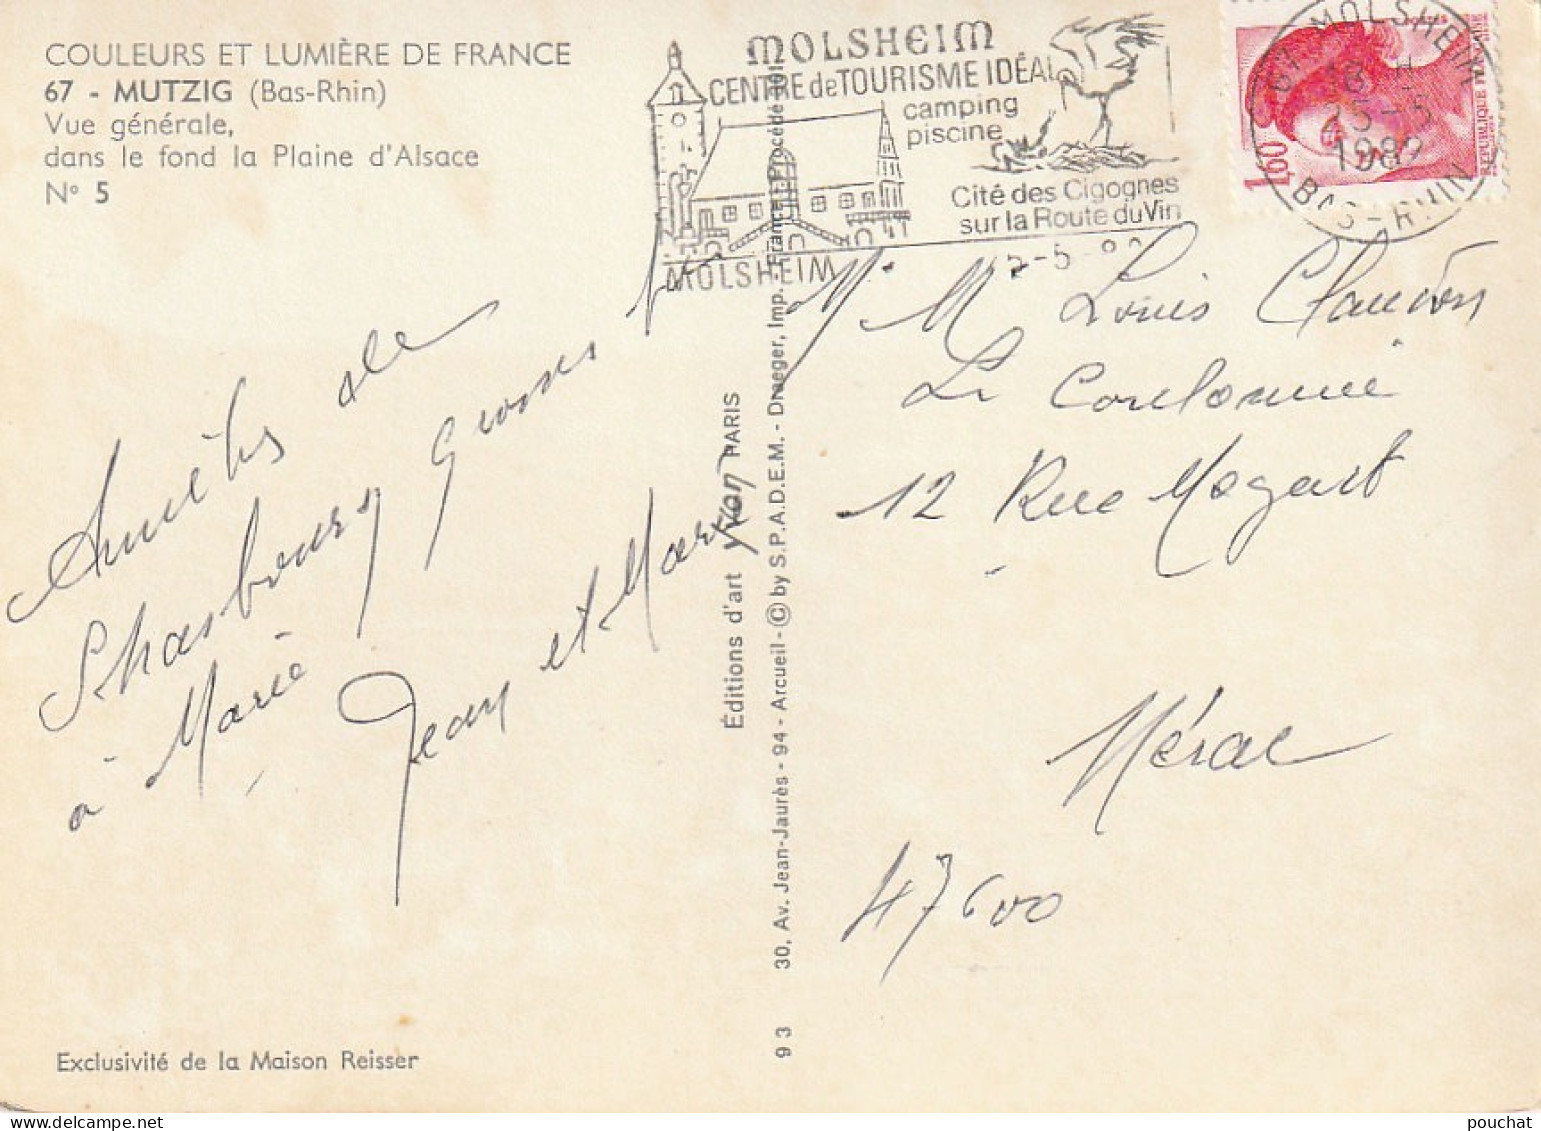 COULEURS ET LUMIÈRE DE FRANCE
67 - MUTZIG (Bas-Rhin)
Vue générale,
dans le fond la Plaine d'Alsace
N° 5
MOLSHEIM
CENTRE de TOURISME IDÉAL
camping
piscine
Cité des Cigognes
sur la Route du Vin
MOLSHEIM
67 MOLSHEIM
18 H
1982
BAS-RHIN
1,60
REPUBLIQUE FRANÇAISE
de
Strasbourg Grosses
à Marie
Jean et Maryvon
Éditions d'art yvon PARIS
30, Av. Jean-Jaurès - 94 - Arcueil - © by S.P.A.D.E.M. - Draeger, Imp. - France
9 3
Mr Mme Louis Claudon
La
12 Rue Mozart
Nérac
47600
Exclusivité de la Maison Reisser
pouchat